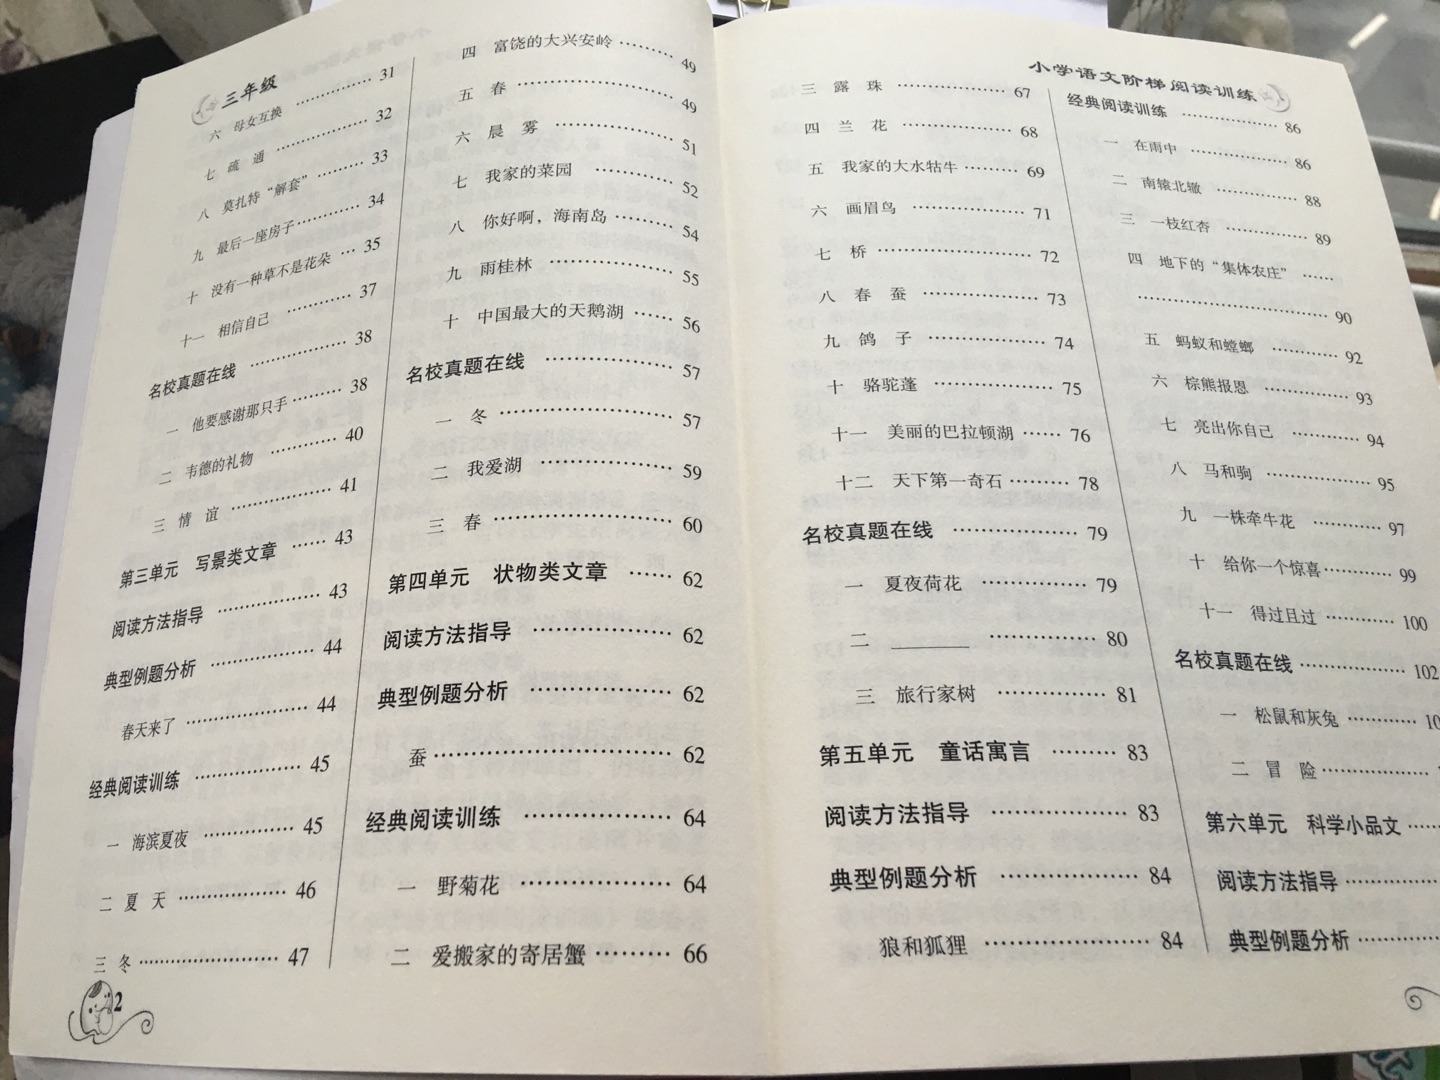 三年级
六 母女互换 …………… 31
七 疏 通 …………… 32
八 莫扎特“解套” ……… 33
九 最后一座房子 ……… 34
十 没有一种草不是花朵 … 35
十一 相信自己 ………… 37
名校真题在线 …………… 38
一 他要感谢那只手 ……… 38
二 韦德的礼物 ………… 40
三 情 谊 …………… 41
第三单元 写景类文章 …… 43
阅读方法指导 …………… 43
典型例题分析 …………… 44
春天来了 …………… 44
经典阅读训练 …………… 45
一 海滨夏夜 …………… 45
二 夏 天 …………… 46
三 冬 …………… 47
2
四 富饶的大兴安岭 ……… 49
五 春 …………… 49
六 晨 雾 …………… 51
七 我家的菜园 ………… 52
八 你好啊，海南岛 ……… 54
九 雨桂林 …………… 55
十 中国最大的天鹅湖 …… 56
名校真题在线 …………… 57
一 冬 …………… 57
二 我爱湖 …………… 59
三 春 …………… 60
第四单元 状物类文章 …… 62
阅读方法指导 …………… 62
典型例题分析 …………… 62
蚕 …………… 62
经典阅读训练 …………… 64
一 野菊花 …………… 64
二 爱搬家的寄居蟹 ……… 66
小学语文阶梯阅读训练
三 露 珠 …………… 67
四 兰 花 …………… 68
五 我家的大水牯牛 ……… 69
六 画眉鸟 …………… 71
七 桥 …………… 72
八 春 蚕 …………… 73
九 鸽 子 …………… 74
十 骆驼蓬 …………… 75
十一 美丽的巴拉顿湖 …… 76
十二 天下第一奇石 ……… 78
名校真题在线 …………… 79
一 夏夜荷花 …………… 79
二 ______ …………… 80
三 旅行家树 …………… 81
第五单元 童话寓言 ……… 83
阅读方法指导 …………… 83
典型例题分析 …………… 84
狼和狐狸 …………… 84
经典阅读训练 …………… 86
一 在雨中 …………… 86
二 南辕北辙 …………… 88
三 一枝红杏 …………… 89
四 地下的“集体农庄” ……
…………… 90
五 蚂蚁和螳螂 ………… 92
六 棕熊报恩 …………… 93
七 亮出你自己 ………… 94
八 马和驹 …………… 95
九 一株牵牛花 ………… 97
十 给你一个惊喜 ………… 99
十一 得过且过 ………… 100
名校真题在线 …………… 102
一 松鼠和灰兔 …………
二 冒 险 ……………
第六单元 科学小品文 ……
阅读方法指导 ……………
典型例题分析 ……………